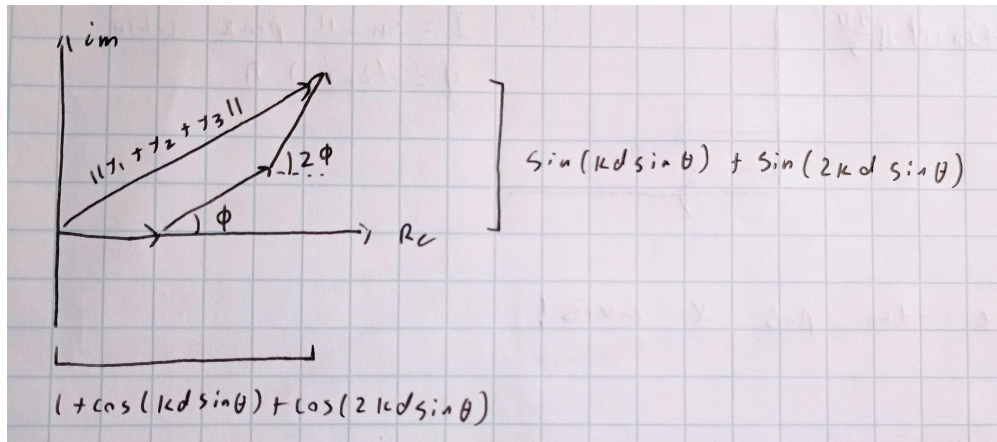 im
||y₁ + y₂ + y₃||
2ϕ
sin(kd sinθ) + sin(2kd sinθ)
ϕ
Re
1 + cos(kd sinθ) + cos(2kd sinθ)